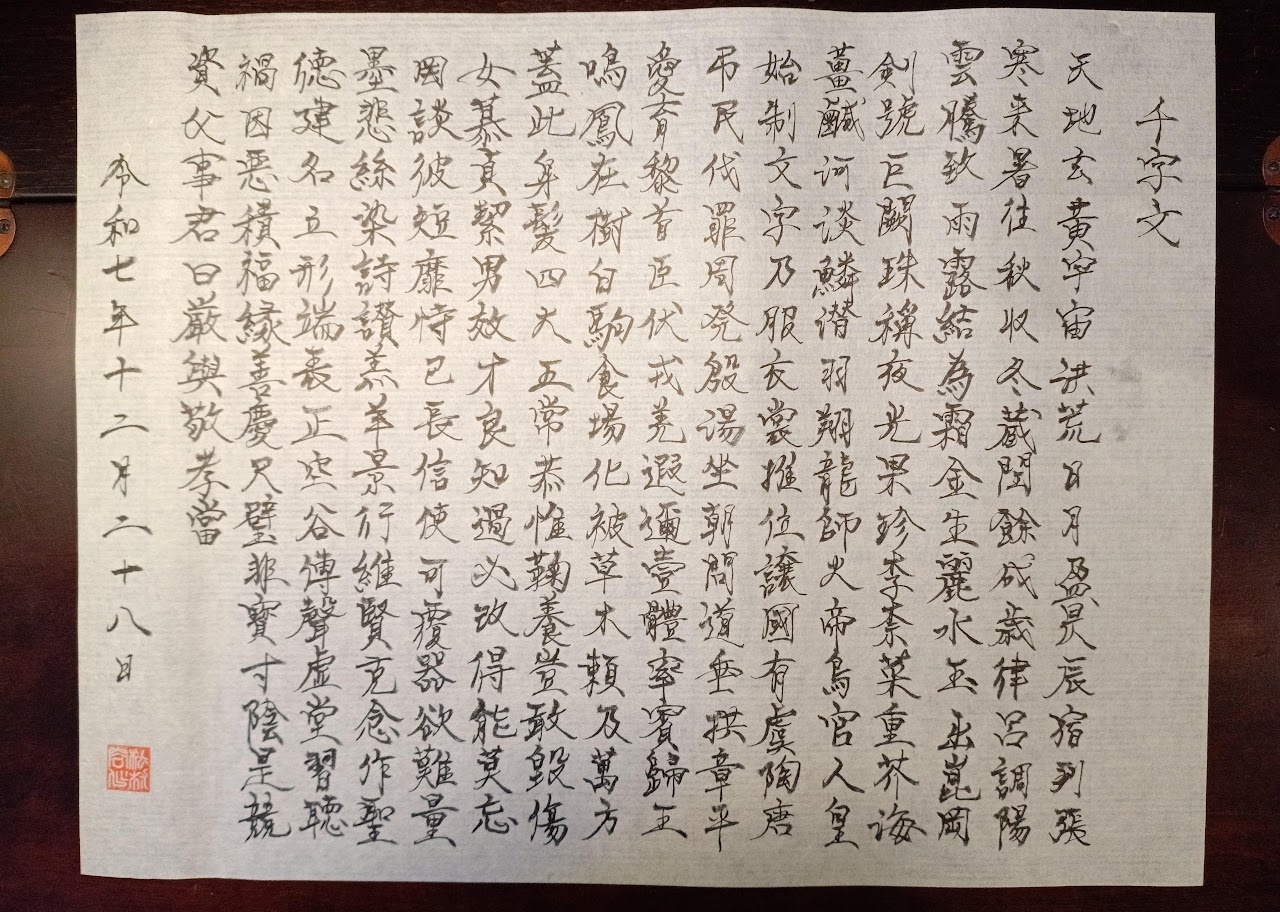 千字文
天地玄黄宇宙洪荒日月盈昃辰宿列張
寒来暑往秋収冬蔵閏餘成歳律呂調陽
雲騰致雨露結為霜金生麗水玉出崑岡
剣號巨闕珠稱夜光果珍李柰菜重芥海
薑鹹河淡鱗潜羽翔龍師火帝鳥官人皇
始制文字乃服衣裳推位譲國有虞陶唐
弔民伐罪周発殷湯坐朝問道垂拱章平
愛育黎首臣伏戎羌遐邇壹體率賓歸王
鳴鳳在樹白駒食場化被草木頼及萬方
蓋此身髪四大五常恭惟鞠養豈敢毀傷
女慕貞絜男效才良知過必改得能莫忘
罔談彼短靡恃己長信使可覆器欲難量
墨悲絲染詩讃羔羊景行維賢克念作聖
徳建名立形端表正空谷傳聲虚堂習聽
禍因惡積福縁善慶尺璧非寶寸陰是競
資父事君曰厳與敬孝當
令和七年十二月二十八日